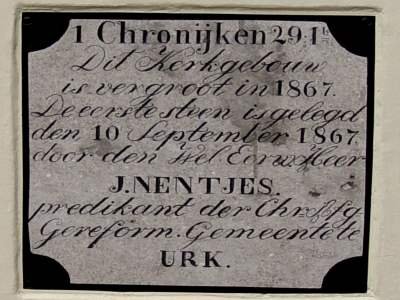 1 Chronijken 29:1b
Dit Kerkgebouw
is vergroot in 1867.
De eerste steen is gelegd
den 10 September 1867
door den Wel. Eerw. Heer
J. NENTJES.
predikant der Chr. Afg.
Gereform. Gemeente te
URK.